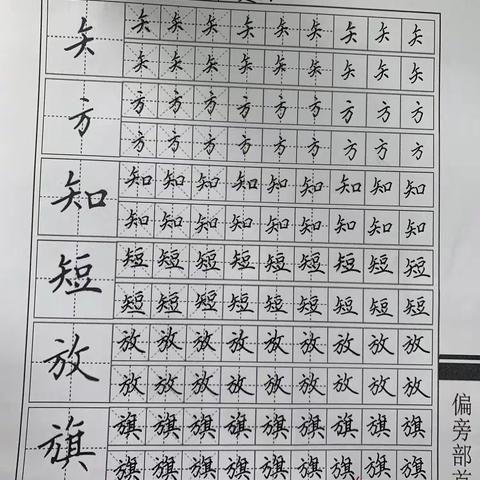 矢 矢 矢 矢 矢 矢 矢 矢 矢 矢
矢 矢 矢 矢 矢 矢 矢 矢 矢
方 方 方 方 方 方 方 方 方 方
方 方 方 方 方 方 方 方 方
知 知 知 知 知 知 知 知 知 知
知 知 知 知 知 知 知 知 知
短 短 短 短 短 短 短 短 短 短
短 短 短 短 短 短 短 短 短
放 放 放 放 放 放 放 放 放 放
放 放 放 放 放 放 放 放 放
旗 旗 旗 旗 旗 旗 旗 旗 旗 旗
旗 旗 旗 旗 旗 旗 旗 旗 旗
偏旁部首